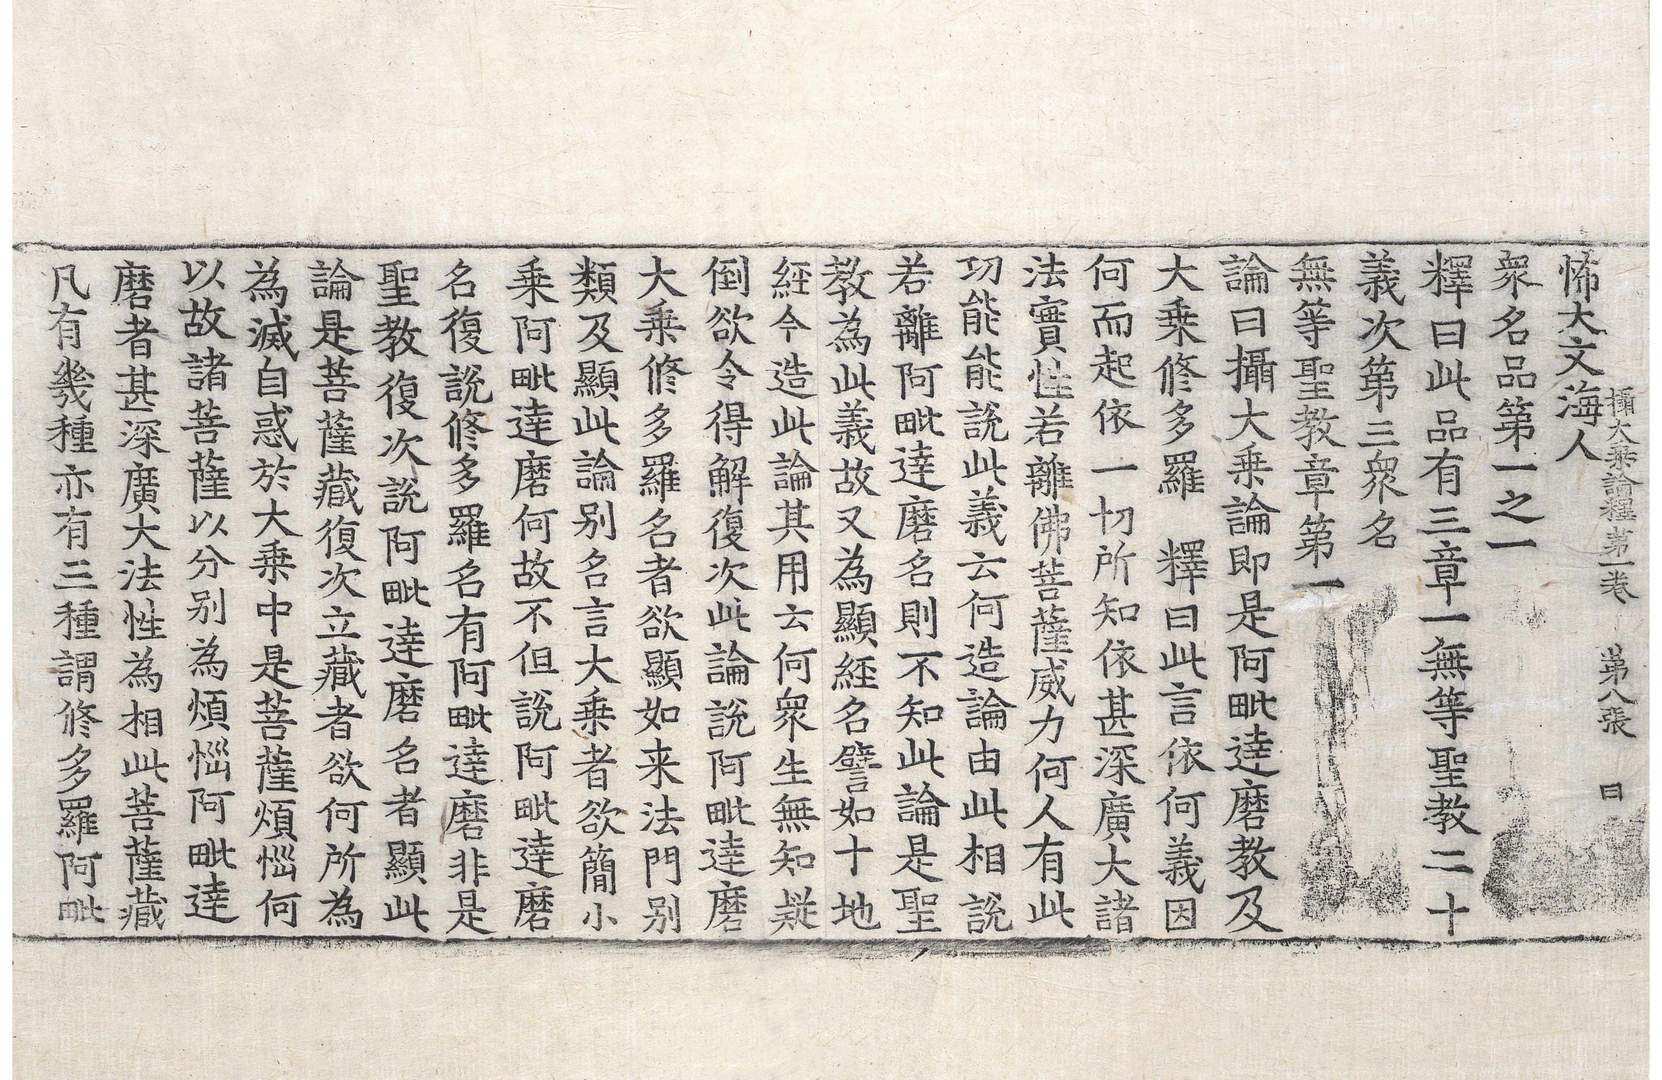 攝大乗論釋第一卷 第八張 曰
怖大文海人
衆名品第一之一
釋曰此品有三章一無等聖教二十
義次第三衆名
無等聖教章第一
論曰攝大乗論即是阿毗達磨教及
大乗修多羅 釋曰此言依何義因
何而起依一切所知依甚深廣大諸
法實性若離佛菩薩威力何人有此
功能能說此義云何造論由此相說
若離阿毗達磨名則不知此論是聖
教為此義故又為顯経名譬如十地
経今造此論其用云何衆生無知疑
倒欲令得解復次此論說阿毗達磨
大乗修多羅名者欲顯如来法門別
類及顯此論別名言大乗者欲簡小
乗阿毗達磨何故不但說阿毗達磨
名復說修多羅名有阿毗達磨非是
聖教復次說阿毗達磨名者顯此
論是菩薩藏復次立藏者欲何所為
為滅自惑於大乗中是菩薩煩惱何
以故諸菩薩以分別為煩惱阿毗達
磨者甚深廣大法性為相此菩薩藏
凡有幾種亦有三種謂修多羅阿毗